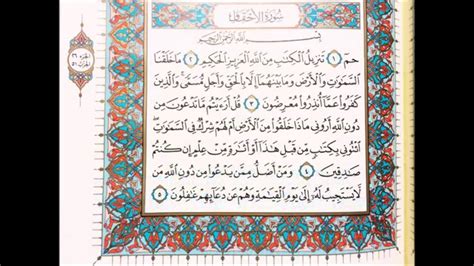 سُورَةُ الأَحْقَافِ
بِسْمِ اللَّهِ الرَّحْمَٰنِ الرَّحِيمِ
حمٓ ١ تَنزِيلُ الْكِتَٰبِ مِنَ اللَّهِ الْعَزِيزِ الْحَكِيمِ ٢ مَا خَلَقْنَا
السَّمَٰوَٰتِ وَالْأَرْضَ وَمَا بَيْنَهُمَآ إِلَّا بِالْحَقِّ وَأَجَلٍ مُّسَمًّى وَالَّذِينَ
كَفَرُوا عَمَّآ أُنذِرُوا مُعْرِضُونَ ٣ قُلْ أَرَءَيْتُم مَّا تَدْعُونَ مِن
دُونِ اللَّهِ أَرُونِى مَاذَا خَلَقُوا مِنَ الْأَرْضِ أَمْ لَهُمْ شِرْكٌ فِى السَّمَٰوَٰتِ
ائْتُونِى بِكِتَٰبٍ مِّن قَبْلِ هَٰذَآ أَوْ أَثَٰرَةٍ مِّنْ عِلْمٍ إِن كُنتُمْ
صَٰدِقِينَ ٤ وَمَنْ أَضَلُّ مِمَّن يَدْعُوا مِن دُونِ اللَّهِ مَن
لَّا يَسْتَجِيبُ لَهُۥٓ إِلَىٰ يَوْمِ الْقِيَٰمَةِ وَهُمْ عَن دُعَآئِهِمْ غَٰفِلُونَ ٥
الجزء ٢٦